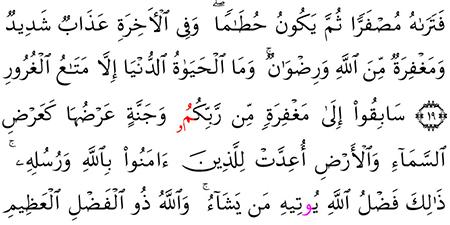 فَتَرَىٰهُ مُصْفَرًّا ثُمَّ يَكُونُ حُطَٰمًا ۖ وَفِي اِ۬لْأٓخِرَةِ عَذَابٌ شَدِيدٌ
وَمَغْفِرَةٌ مِّنَ اَ۬للَّهِ وَرِضْوَٰنٌ ۚ وَمَا اَ۬لْحَيَوٰةُ اُ۬لدُّنْيَا إِلَّا مَتَٰعُ اُ۬لْغُرُورِ
١٩ سَابِقُوٓا۟ إِلَىٰ مَغْفِرَةٍ مِّن رَّبِّكُمُۥ وَجَنَّةٍ عَرْضُهَا كَعَرْضِ
اِ۬لسَّمَآءِ وَالْأَرْضِ أُعِدَّتْ لِلَّذِينَ ءَامَنُوا۟ بِاللَّهِ وَرُسُلِهِۦ ۚ
ذَٰلِكَ فَضْلُ اُ۬للَّهِ يُوتِيهِ مَن يَشَآءُ ۚ وَاللَّهُ ذُو اُ۬لْفَضْلِ اِ۬لْعَظِيمِ